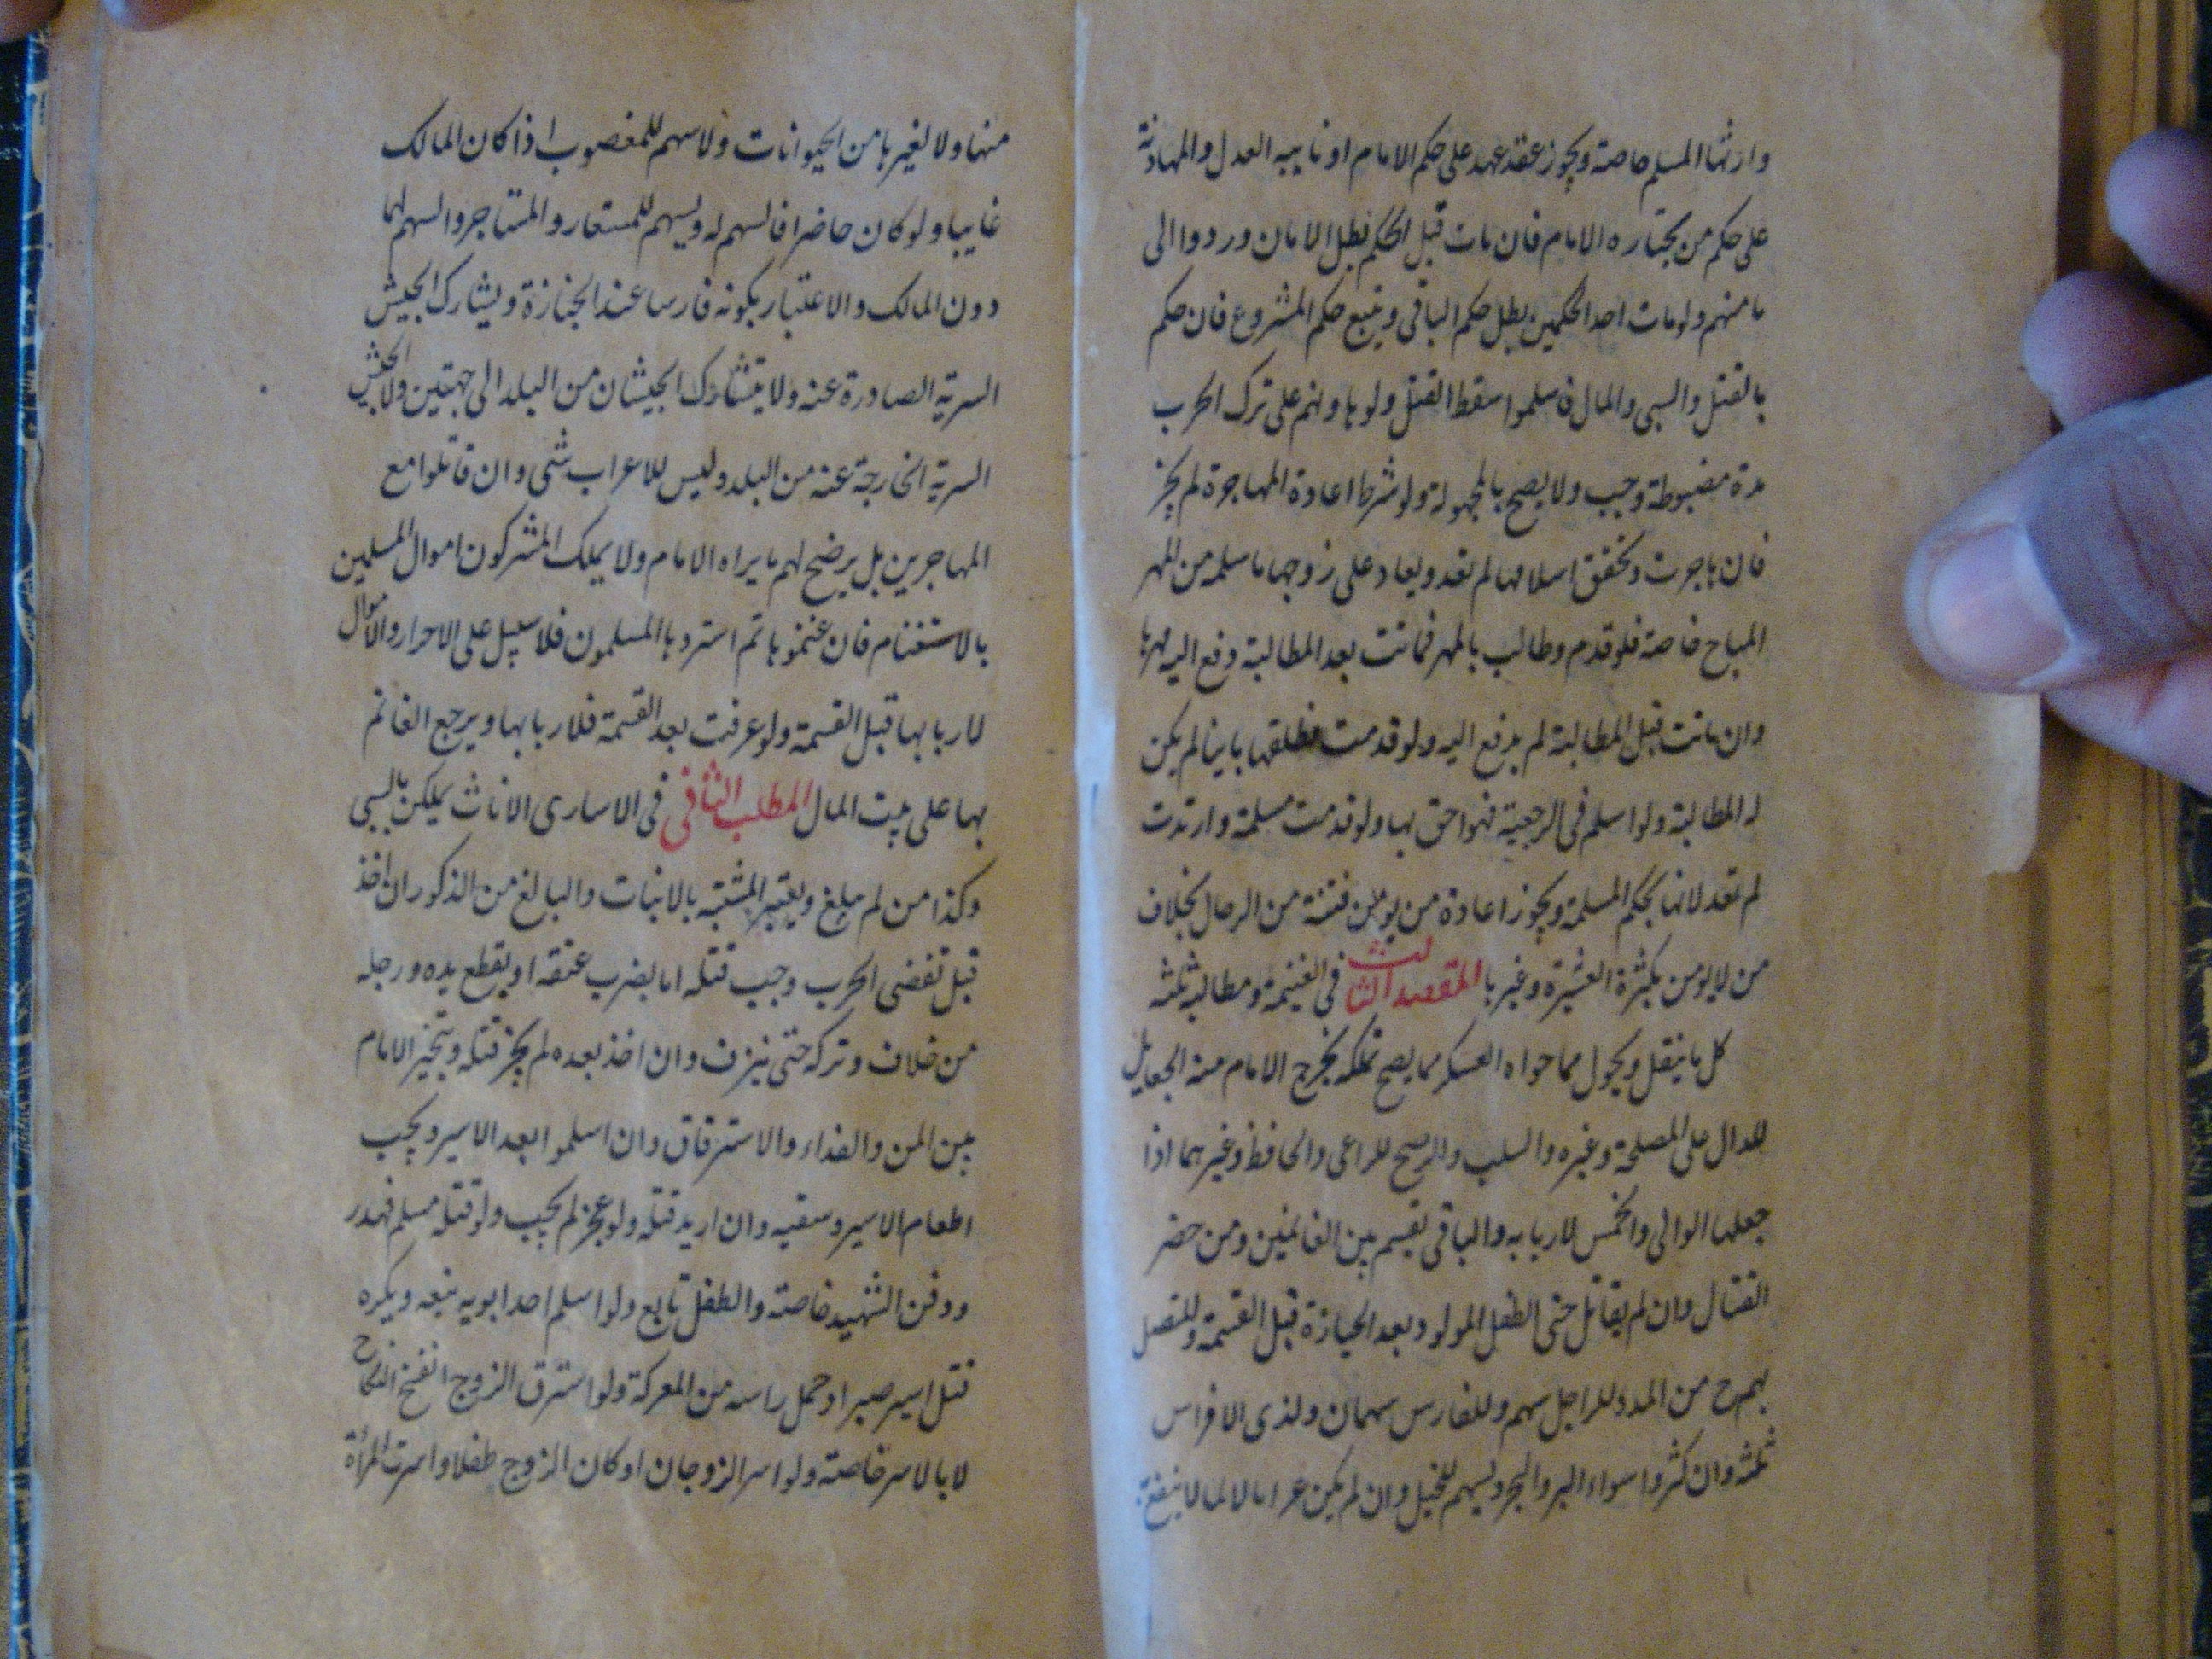 وارثها المسلم خاصة ويجوز عقد عهد على حكم الامام او نايبه العدل والمهادنة
على حكم من يختاره الامام فان مات قبل الحكم بطل الامان وردوا الى
مامنهم ولو مات احد الحكمين بطل حكم الباقى ويتبع حكم المشروع فان حكم
بالقتل والسبى والمال فاسلموا سقط القتل ولو هادنهم على ترك الحرب
مدة مضبوطة وجب ولا يصح بالمجهولة ولو شرط اعادة المهاجرة لم يجز
فان هاجرت وتحقق اسلامها لم تعد ويعاد على زوجها ما سلمه من المهر
المباح خاصة فلو قدم وطالب بالمهر فماتت بعد المطالبة دفع اليه مهرها
وان ماتت قبل المطالبة لم يدفع اليه ولو قدمت فطلقها باينا لم يكن
له المطالبة ولو اسلم فى الرجعية فهو احق بها ولو قدمت مسلمة وارتدت
لم تعد لانها بحكم المسلمة ويجوز اعادة من يومن فتنته من الرجال بخلاف
من لا يومن بكثرة العشيرة وغيرها المقصد الثالث فى الغنيمة ومطالبه ثلثه
كل ما ينقل ويحول مما حواه العسكر مما يصح تملكه يخرج الامام منه الجعايل
للدال على المصلحة وغيره والسلب والرضخ للراعى والحافظ وغيرهما اذا
جعلها الوالى والخمس لاربابه والباقى يقسم بين الغانمين ومن حضر
القتال وان لم يقاتل حتى الطفل المولود بعد الحيازة قبل القسمة وللمتصل
بهم ح من المدد للراجل سهم وللفارس سهمان ولذى الافراس
ثلثه وان كثروا سواء البر والبحر ويسهم للخيل وان لم يكن عرابا لا لما لا ينتفع به
منها ولا لغيرها من الحيوانات ولا سهم للمغصوب اذا كان المالك
غايبا ولو كان حاضرا فالسهم له ويسهم للمستعار والمستاجر والسهم لهما
دون المالك والاعتبار بكونه فارسا عند الحيازة ويشارك الجيش
السرية الصادرة عنه ولا يتشارك الجيشان من البلد الى جهتين ولا الجيش
السرية الخارجة عنه من البلد وليس للاعراب شى وان قاتلوا مع
المهاجرين بل يرضخ لهم ما يراه الامام ولا يملك المشركون اموال المسلمين
بالاستغنام فان غنموها ثم استردها المسلمون فلا سبيل على الاحرار والاموال
لاربابها قبل القسمة ولو عرفت بعد القسمة فلاربابها ويرجع الغانم
بها على بيت المال المطلب الثانى فى الاسارى الاناث يملكن بالسبى
وكذا من لم يبلغ ويعتبر المشتبه بالانبات والبالغ من الذكور ان اخذ
قبل تقضى الحرب وجب قتله اما بضرب عنقه او بقطع يده ورجله
من خلاف وتركه حتى ينزف وان اخذ بعده لم يجز قتله ويتخير الامام
بين المن والفداء والاسترقاق وان اسلموا بعد الاسر ويجب
اطعام الاسير وسقيه وان اريد قتله ولو عجز لم يجب ولو قتله مسلم فهدر
ودفن الشهيد خاصة والطفل تابع ولو اسلم احد ابويه تبعه ويكره
قتل اسير صبرا وحمل راسه من المعركة ولو استرق الزوج انفسخ النكاح
لا بالاسر خاصة ولو اسر الزوجان او كان الزوج طفلا واسرت المرأة